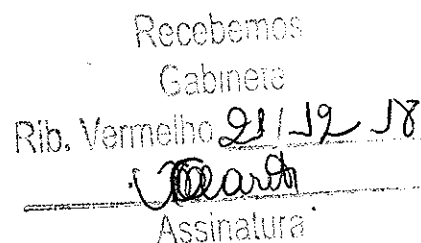 Recebemos
Gabinete
Rib. Vermelho 21/12 18
Assinatura